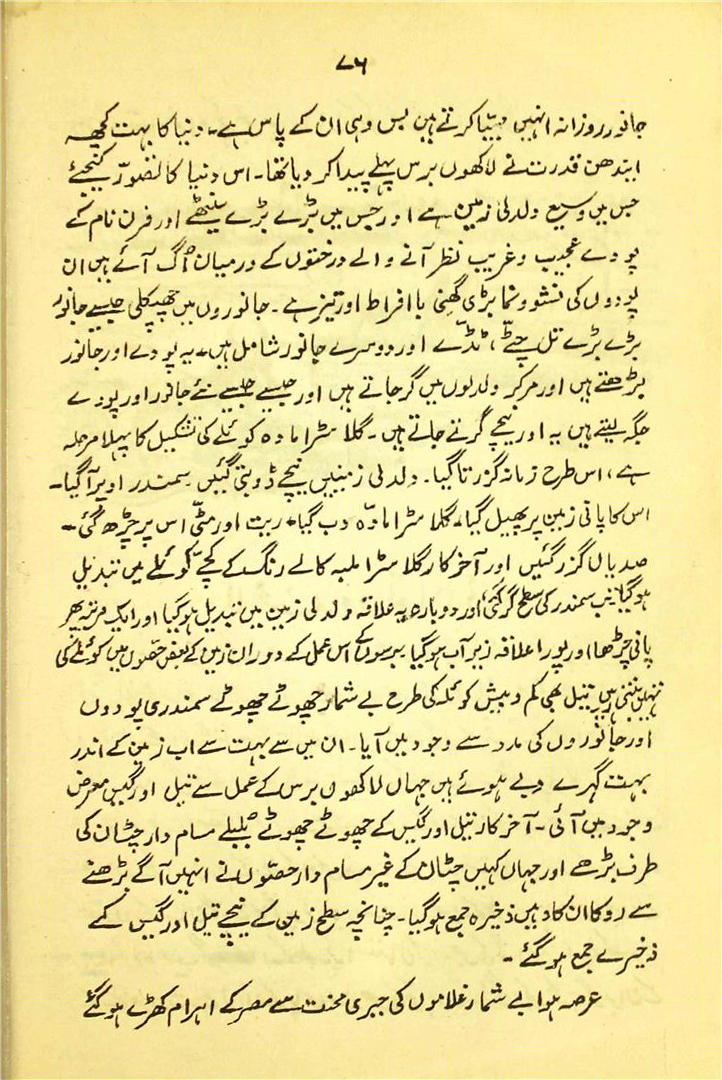 ۷۶
جانور روزانہ انہیں مہیّا کرتے ہیں بس وہی ان کے پاس ہے۔ دنیا کا بہت کچھ
ایندھن قدرت نے لاکھوں برس پہلے پیدا کر دیا تھا۔ اس دنیا کا تصوّر کیجیئے
جس میں وسیع دلدلی زمین ہے اور جس میں بڑے بڑے پنٹھے اور فرن نام کے
پودے عجیب و غریب نظر آنے والے درختوں کے درمیان اُگ آئے ہیں ان
پودوں کی نشوونما بڑی گھنی با افراط اور تیز ہے۔ جانوروں میں چھپکلی جیسے جانور
بڑے بڑے تل چٹّے، ٹڈّے اور دوسرے جانور شامل ہیں۔ یہ پودے اور جانور
بڑھتے ہیں اور مر کر دلدلوں میں گر جاتے ہیں اور جیسے جیسے نئے جانور اور پودے
جگہ لیتے ہیں یہ اور نیچے گرتے جاتے ہیں۔ گلا سڑا مادہ کوئلے کی تشکیل کا پہلا مرحلہ
ہے، اس طرح زمانہ گزرتا گیا۔ دلدلی زمینیں نیچے ڈوبتی گئیں۔ سمندر اوپر آ گیا۔
اس کا پانی زمین پر پھیل گیا۔ گلا سڑا مادّہ دب گیا۔ ریت اور مٹّی اس پر چڑھ گئی۔
صدیاں گزر گئیں اور آخر کار گلا سڑا ملبہ کالے رنگ کے کچّے کوئلے میں تبدیل
ہو گیا تب سمندر کی سطح گر گئی، اور دوبارہ یہ علاقہ دلدلی زمین میں تبدیل ہو گیا اور ایک مرتبہ پھر
پانی چڑھا اور پورا علاقہ زیر آب ہو گیا برسوں کے اس عمل کے دوران زمین کے بعض حصّوں میں کوئلے کی
تہیں بنتی رہیں تیل بھی کم و بیش کوئلہ کی طرح بے شمار چھوٹے چھوٹے سمندری پودوں
اور جانوروں کی مدد سے وجود میں آیا۔ ان میں سے بہت سے اب زمین کے اندر
بہت گہرے دبے ہوئے ہیں جہاں لاکھوں برس کے عمل سے تیل اور گیس معرض
وجود میں آئی۔ آخر کار تیل اور گیس کے چھوٹے چھوٹے بلبلے مسام دار چٹان کی
طرف بڑھے اور جہاں کہیں چٹان کے غیر مسام دار حصّوں نے انہیں آگے بڑھنے
سے روکا ان کا وہیں ذخیرہ جمع ہو گیا۔ چنانچہ سطح زمین کے نیچے تیل اور گیس کے
ذخیرے جمع ہو گئے۔
عرصہ ہوا بے شمار غلاموں کی جبری محنت سے مصر کے اہرام کھڑے ہو گئے